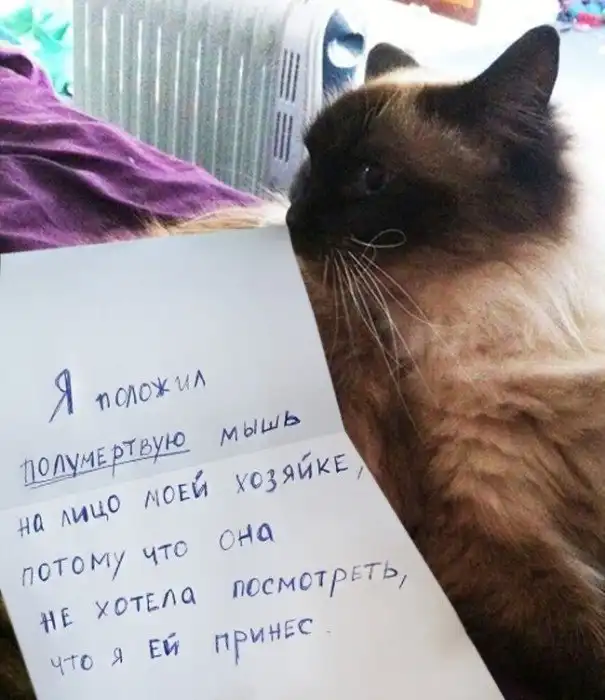 Я положил
полумертвую мышь
на лицо моей хозяйке,
потому что она
не хотела посмотреть,
что я ей принес.